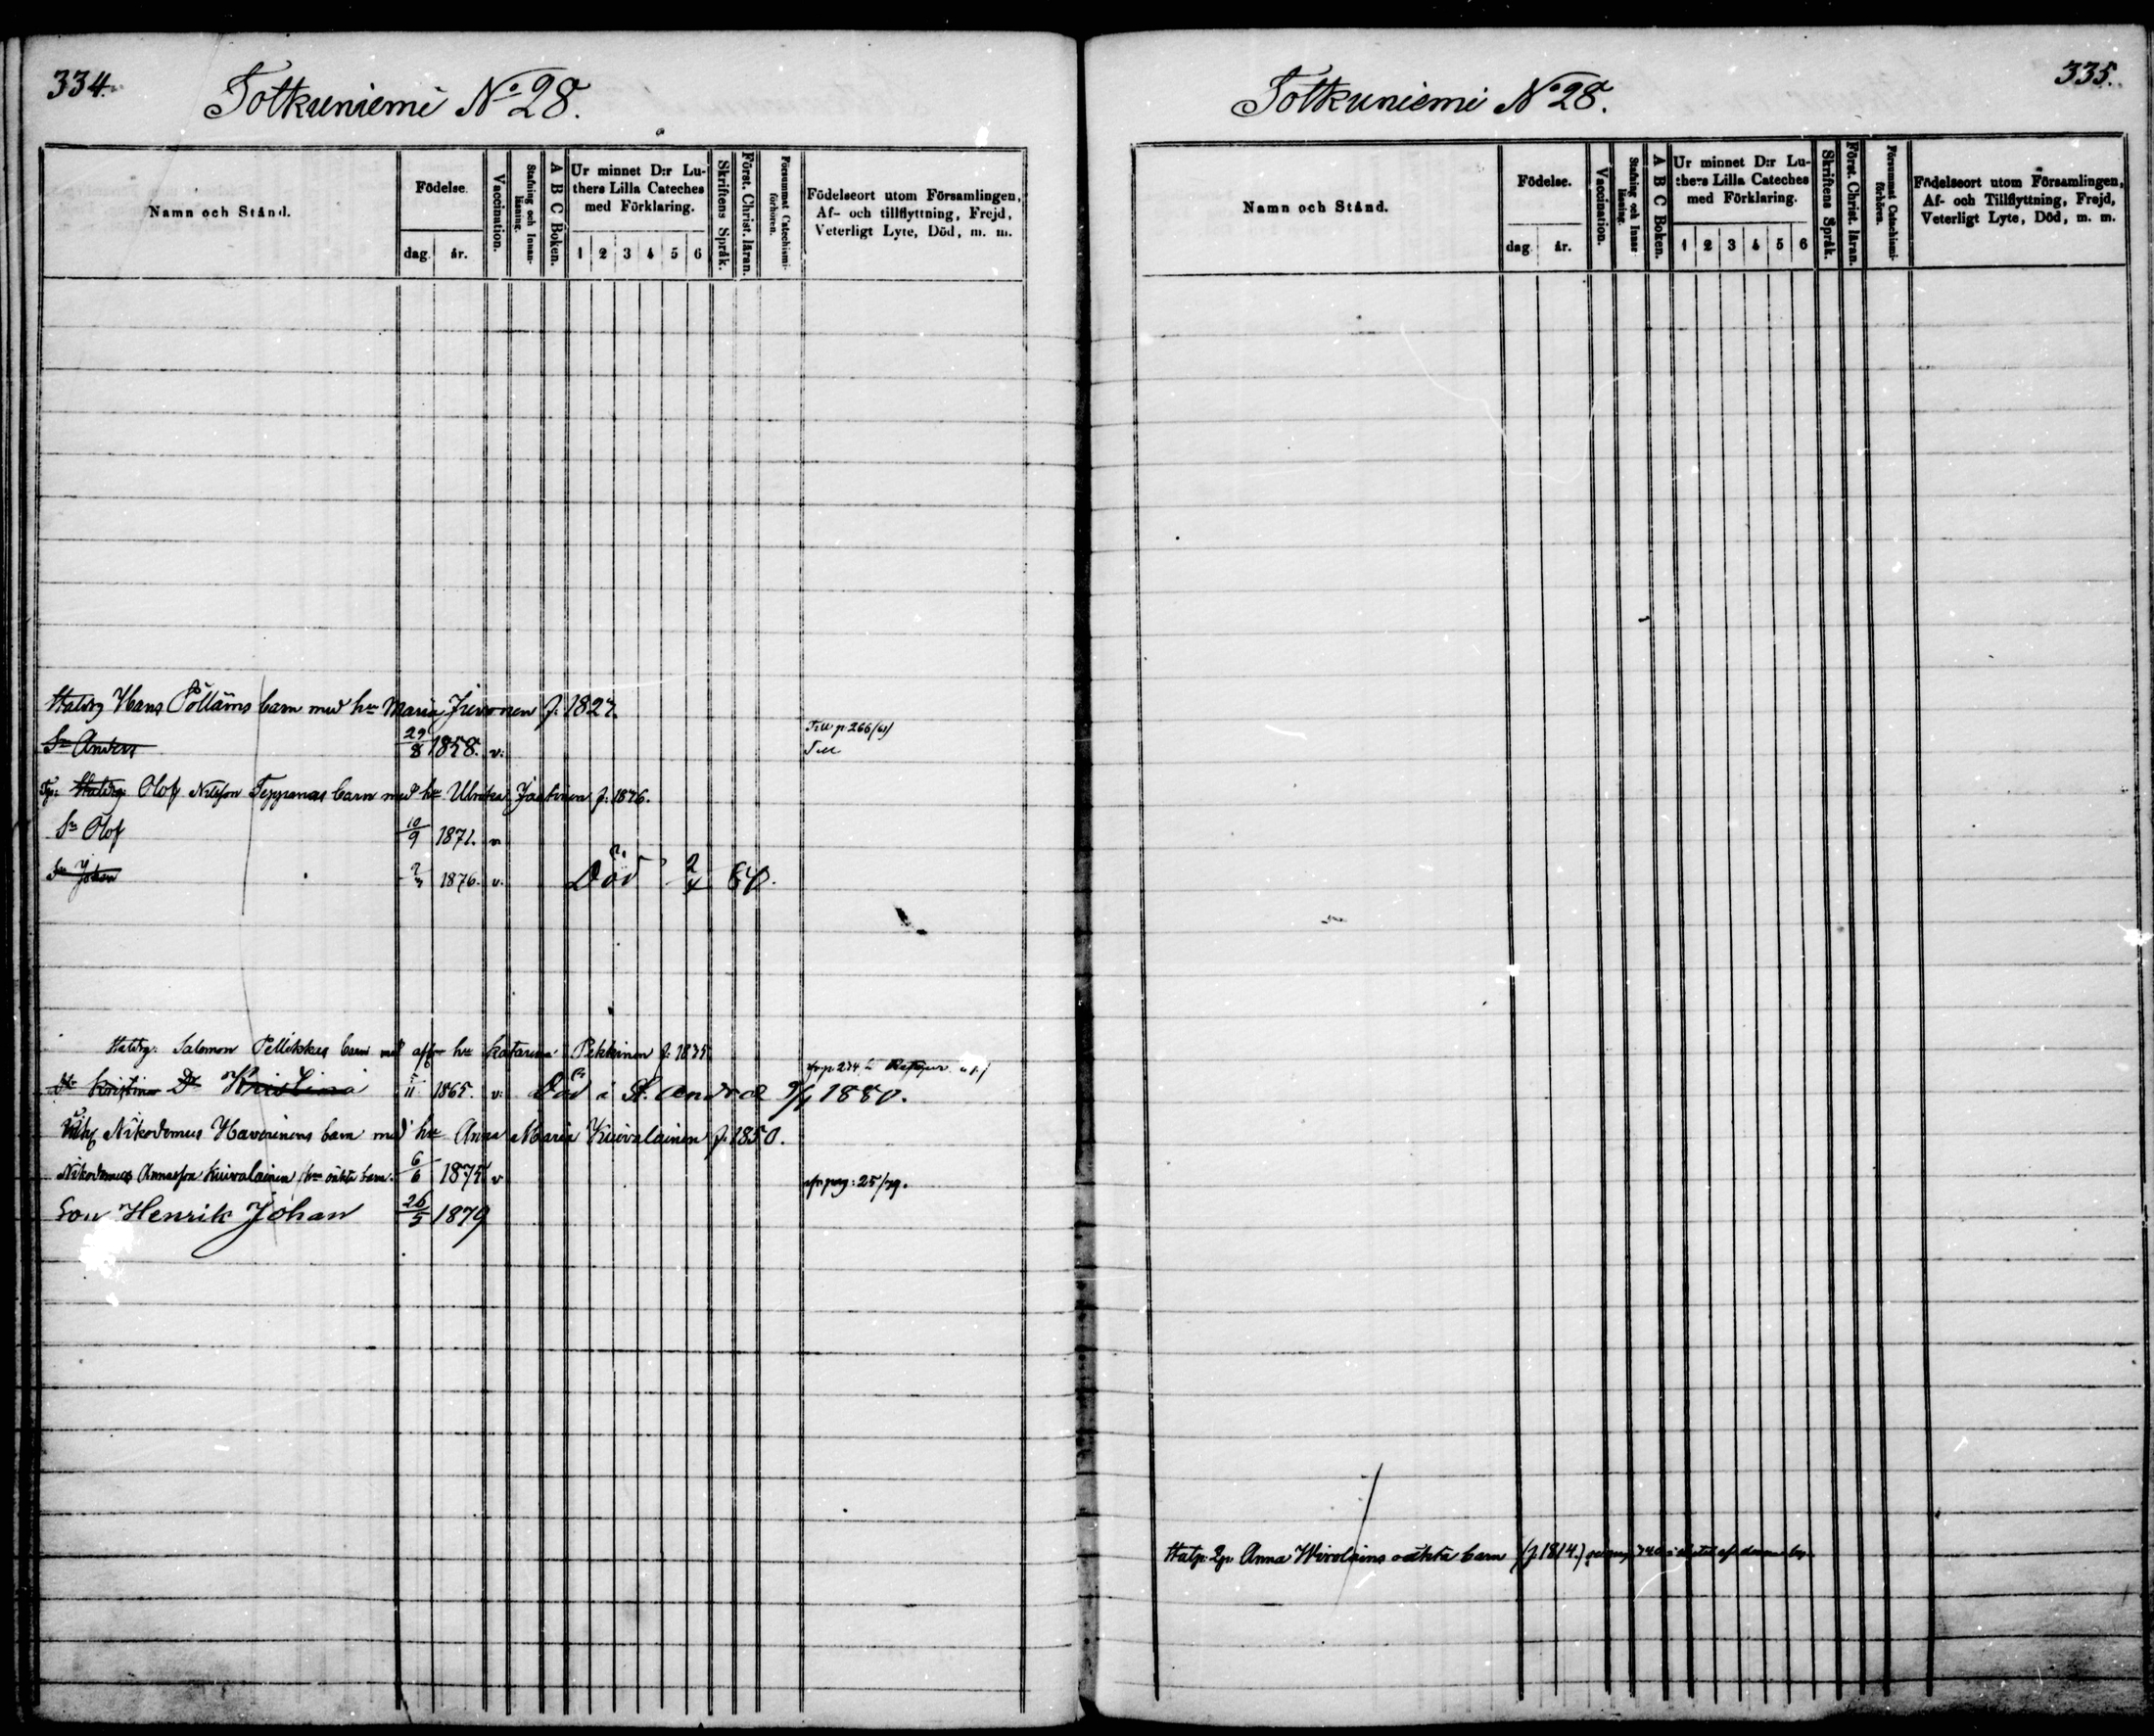 334.
Totkuniemi No 28.
Namn och Stånd.
Födelse.
dag.
år.
Vaccination.
Stafning och Innan-läsning.
A B C Boken.
Ur minnet D:r Lu-
thers Lilla Cateches
med Förklaring.
1 2 3 4 5 6
Skriftens Språk.
Först. Christ. läran.
Försummat Catechismi-förhören.
Födelseort utom Församlingen,
Af- och tillflyttning, Frejd,
Veterligt Lyte, Död, m. m.
Hans Pölläns barn med hu Maria Juvonen f. 1827.
Sn Anders 29/8 1858. v. Till p. 266/61
Till
Olof Nilsson Teppanas barn med hu Ulrika Jäntinen f. 1846.
Sn Olof 10/9 1872. v.
Sn Johan 1876. v. Död 2/4 80.
Salomon Pellikkas barn med hu Katarina Pekkinen f. 1835
Dr Kristina Dr Kristina 5/11 1865. v. Död i St. Andræ 9/4 1880.
Nikodemus Haverinens barn med hu Anna Maria Kuivalainen f. 1850.
Nikodemus Annasson Kuivalainen hus oäkta barn. 6/6 1875 v pag: 25/79.
Son Henrik Johan 26/5 1879
335.
Totkuniemi No 28.
Namn och Stånd.
Födelse.
dag.
år.
Vaccination.
Stafning och Innan-läsning.
A B C Boken.
Ur minnet D:r Lu-
thers Lilla Cateches
med Förklaring.
1 2 3 4 5 6
Skriftens Språk.
Först. Christ. läran.
Försummat Catechismi-förhören.
Födelseort utom Församlingen,
Af- och Tillflyttning, Frejd,
Veterligt Lyte, Död, m. m.
Anna Wirolains oäkta barn (f. 1814.)